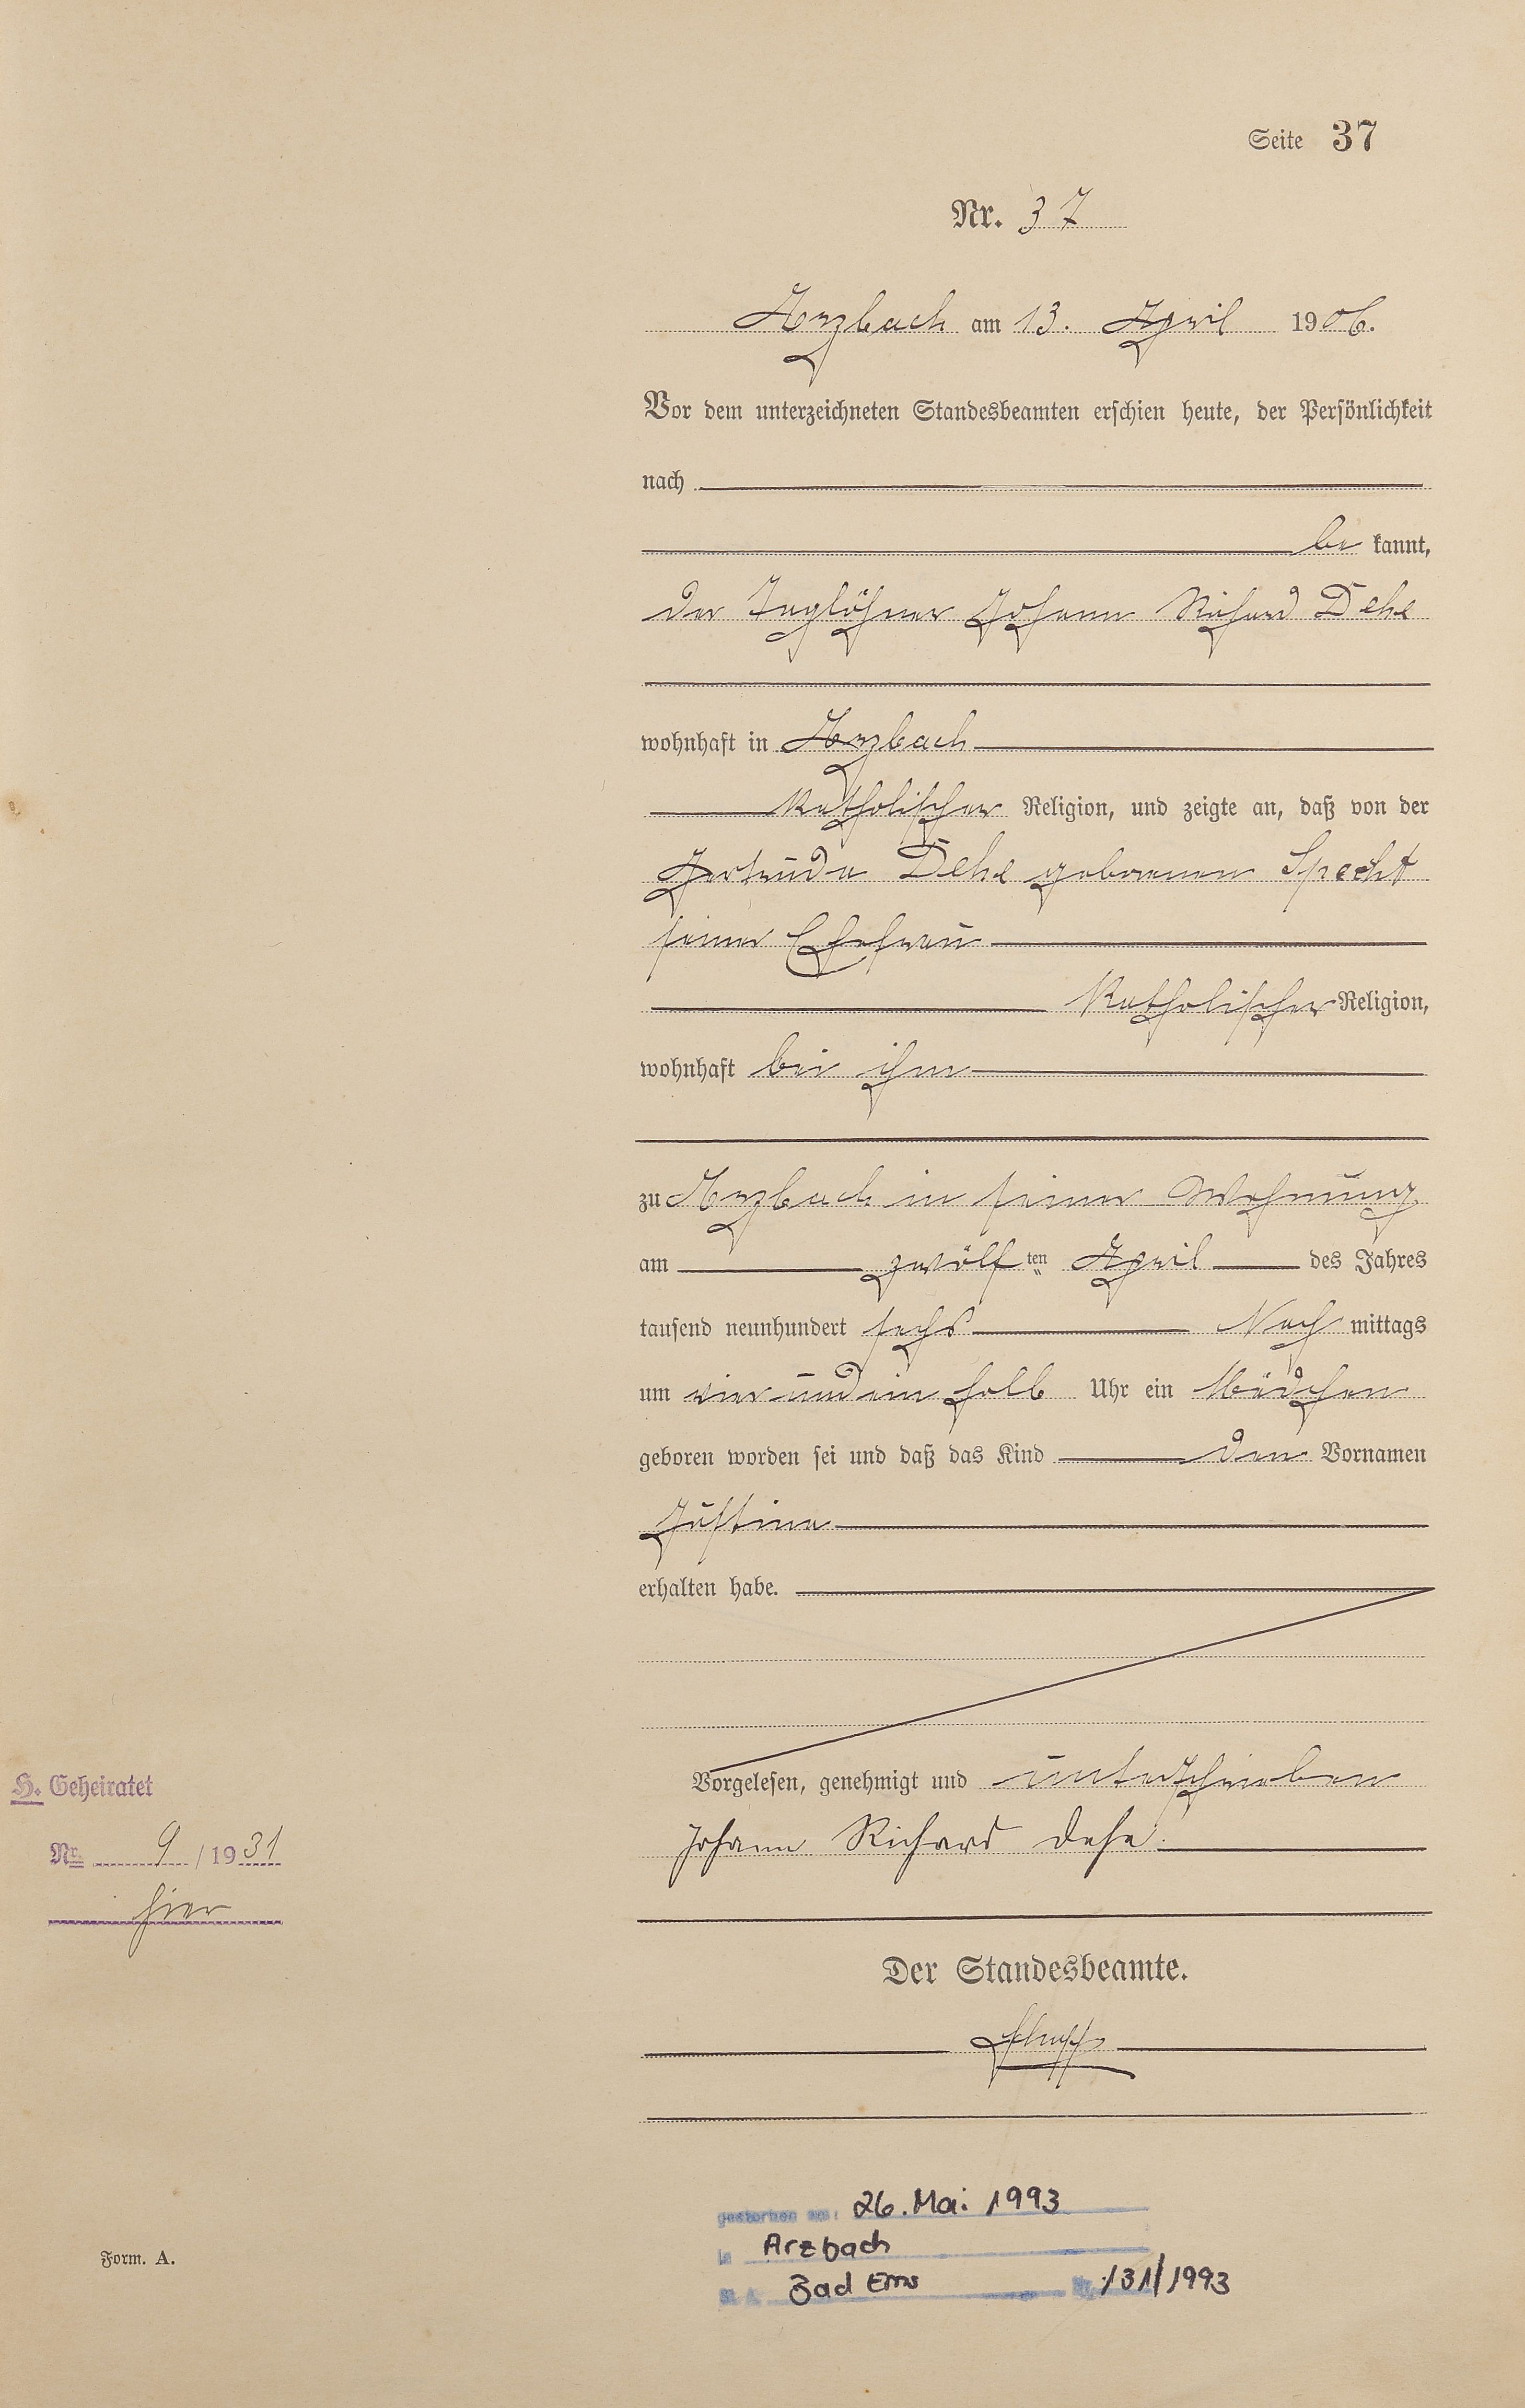 Seite 37
Nr. 37
Arzbach am 13. April 1906.
Vor dem unterzeichneten Standesbeamten erschien heute, der Persönlichkeit
nach
be kannt,
der Taglöhner Johann Richard Dehe
wohnhaft in Arzbach
katholischer Religion, und zeigte an, daß von der
Gertruda Dehe geborenen Specht
seiner Ehefrau
katholischer Religion,
wohnhaft bei ihm
zu Arzbach in seiner Wohnung
am zwölf ten April des Jahres
tausend neunhundert sechs Nach mittags
um vier und ein halb Uhr ein Mädchen
geboren worden sei und daß das Kind den Vornamen
Justina
erhalten habe.
Vorgelesen, genehmigt und unterschrieben
Johann Richard Dehe.
H. Geheiratet
Nr. 9/1931
hier
Der Standesbeamte.
gestorben am: 26. Mai 1993
in Arzbach
St. A. Bad Ems Nr. 131/1993
Form. A.